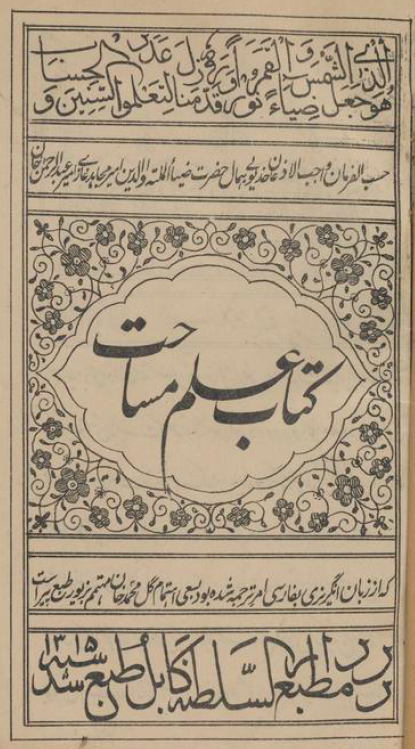 هُوَ الَّذِي جَعَلَ الشَّمْسَ ضِيَاءً وَالْقَمَرَ نُورًا وَقَدَّرَهُ مَنَازِلَ لِتَعْلَمُوا عَدَدَ السِّنِينَ وَالْحِسَابَ
حسب الفرمان واجب الاذعان خدیو بیهمال حضرت ضیاء الملة والدین امیر مجاهد غازی امیر عبدالرحمن خان
کتاب علم مساحت
که از زبان انگریزی بفارسی امر ترجمه شده بود بسعی اهتمام گل محمد خان مهتمم بزیور طبع پیراست
در مطبع دار السلطنه کابل طبع شد سنه ۱۳۱۵